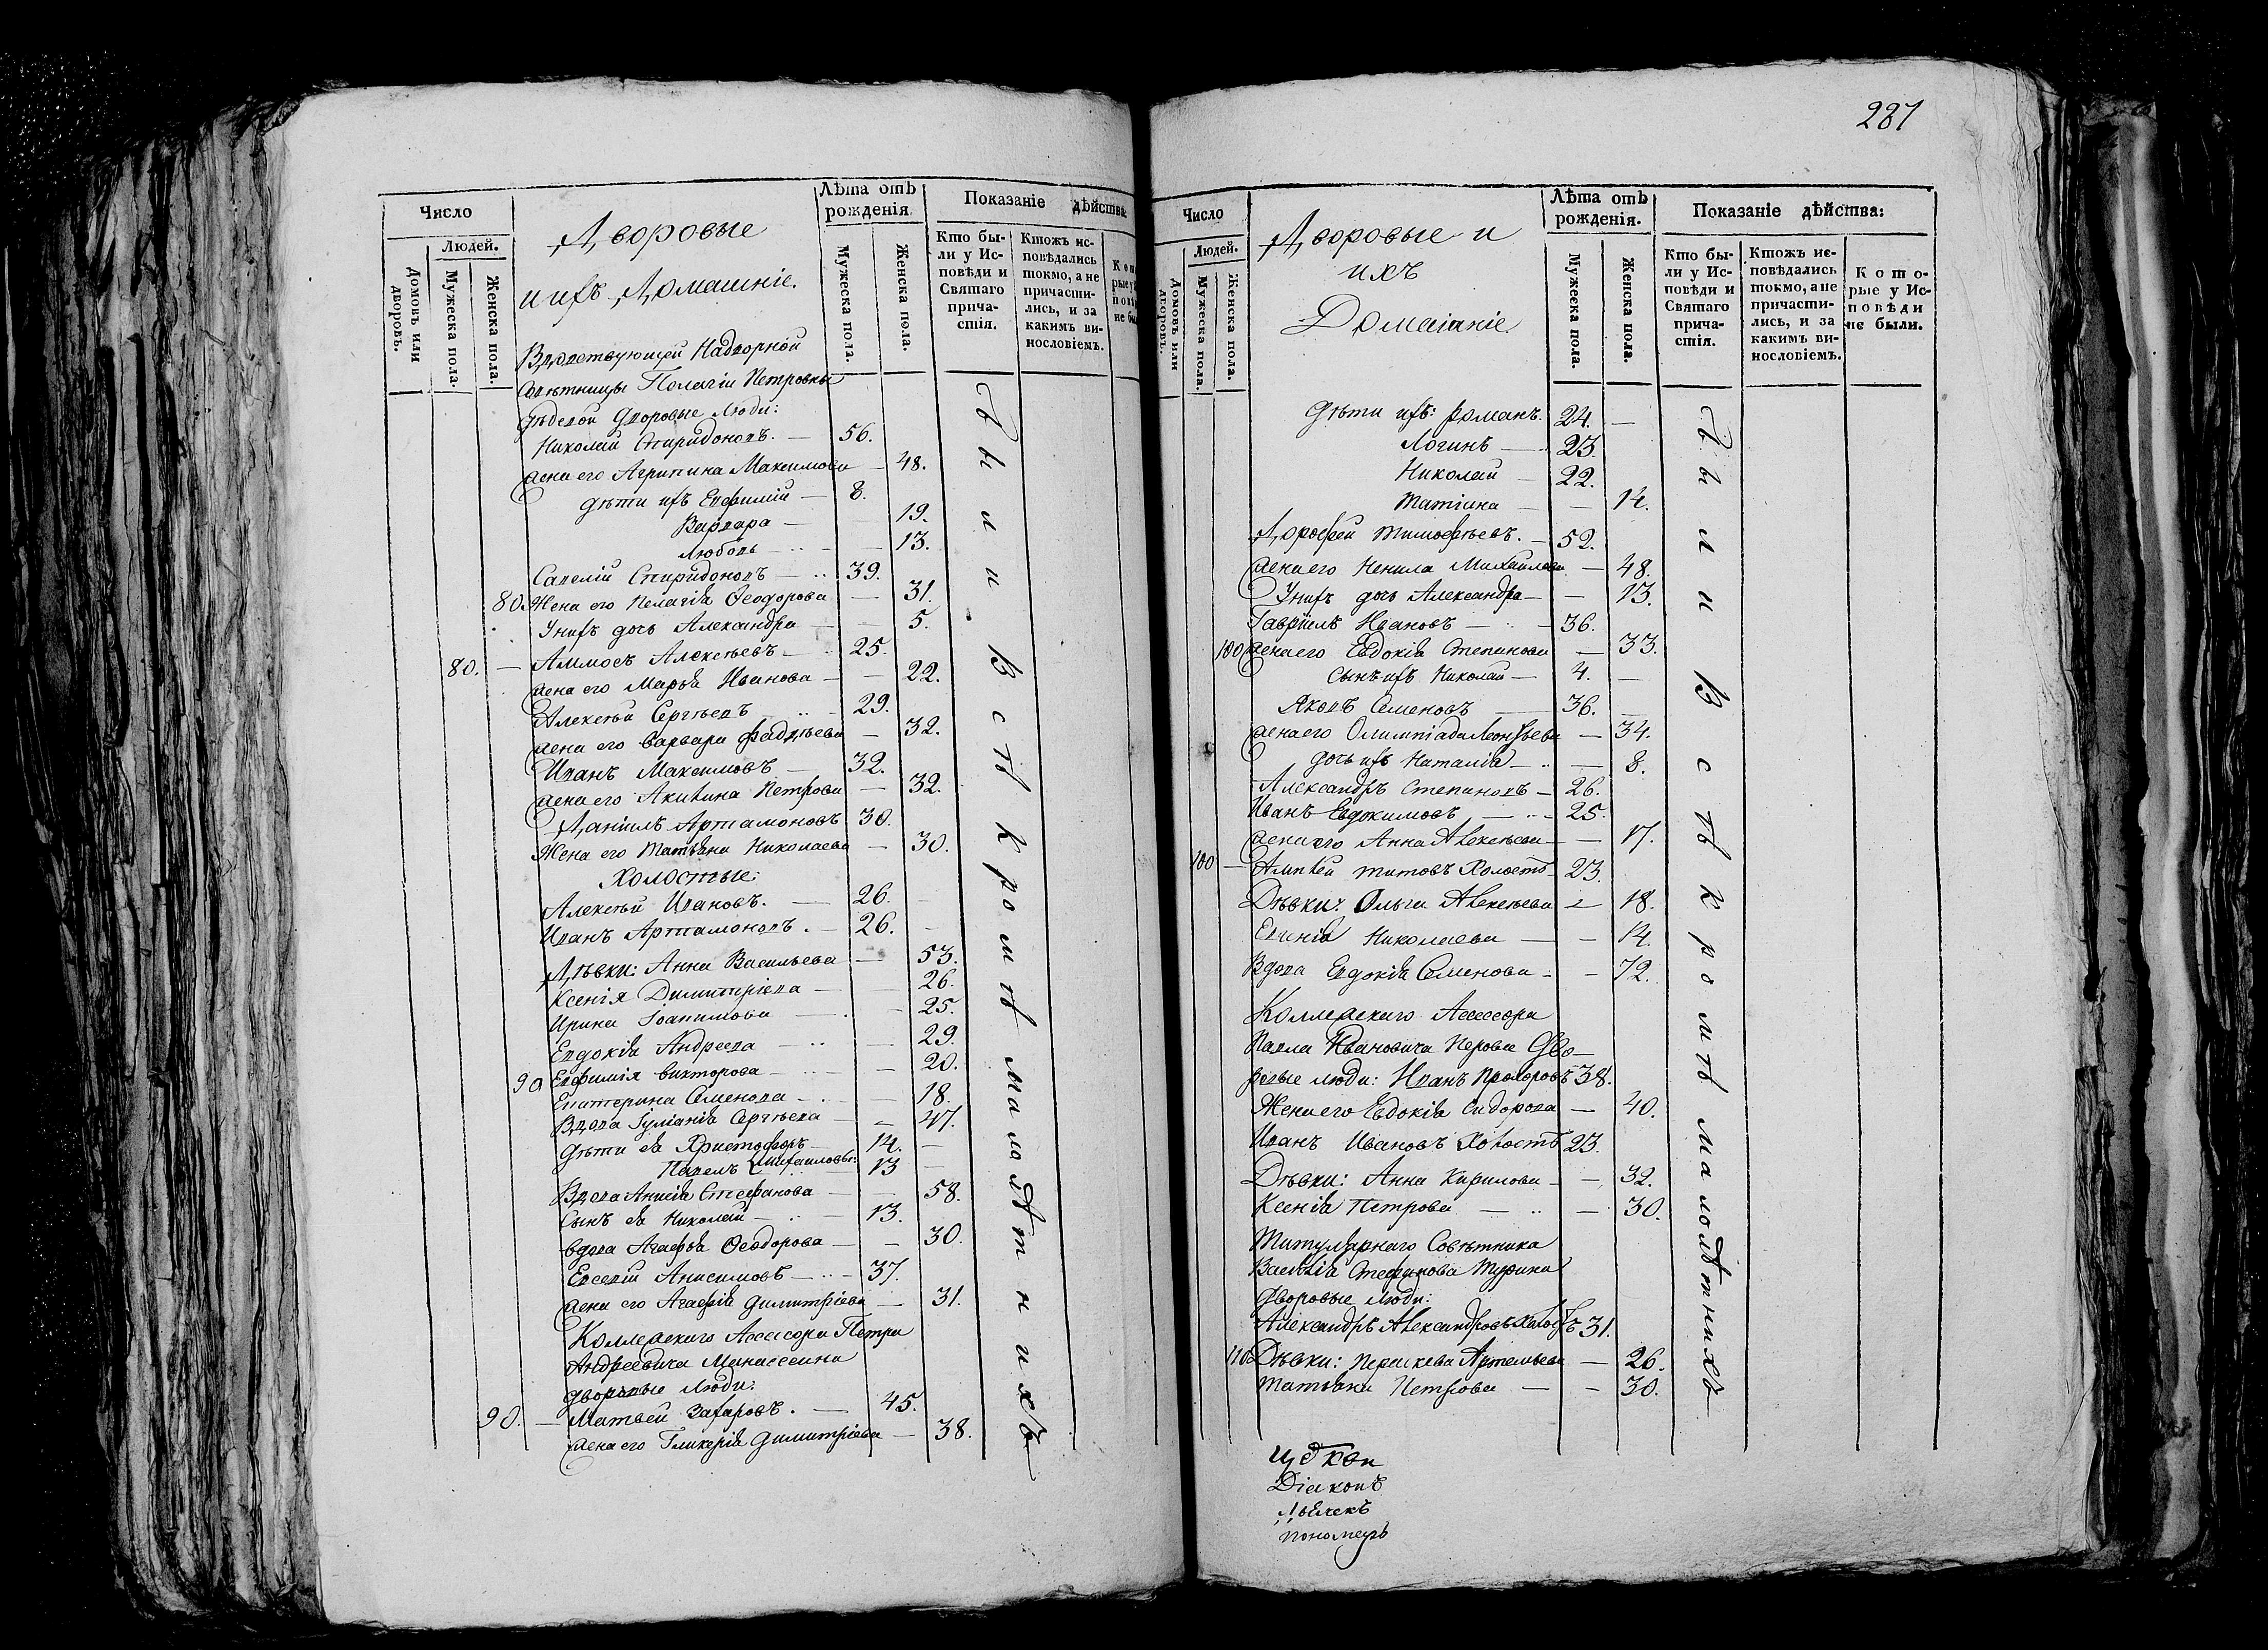 Число
Людей.
Домовъ или дворовъ.
Мужеска пола.
Женска пола.
Дворовые
и ихъ Домашніе.
Лѣта отъ рожденія.
Мужеска пола.
Женска пола.
Показаніе дѣйства:
Кто бы-
ли у Ис-
повѣди и
Святаго
прича-
стія.
Ктожъ ис-
повѣдались
токмо, а не
причасти-
лись, и за
какимъ ви-
нословіемъ.
Вдовствующей Надворной
Совѣтницы Пелагіи Петровны
дворовые Люди:
Николай Спиридоновъ. — 56.
жена его Агрипина Максимова — 48.
дѣти ихъ Евфимій — 8.
Варвара — 19.
Любовь — 13.
Савелій Спиридоновъ — 39.
80. Жена его Пелагіа Ѳеодорова — 31.
У нихъ дочь Александра — 5.
80. — Аммосъ Алексѣевъ — 25.
жена его Марья Иванова — 22.
Алексѣй Сергѣевъ — 29.
жена его Варвара Фадѣева — 32.
Иванъ Максимовъ — 32.
жена его Акилина Петрова — 32.
Даніилъ Артамоновъ 30.
Жена его Татьяна Николаева — 30.
Холостые:
Алексѣй Ивановъ. — 26.
Иванъ Артамоновъ. — 26.
Дѣвки: Анна Васильева — 53.
Ксенія Димитріева — 26.
Ирина Іоакимова — 25.
Евдокіа Андреева — 29.
90 Евфимія Викторова — 20.
Екатерина Семенова — 18.
Вдова Іуліаніа Сергѣева — 47.
дѣти еа Христофоръ — 14. —
Павелъ Михаиловы: 13 —
Вдова Анисіа Стефанова — 58.
Сынъ еа Николай — 13.
вдова Агафьа Ѳеодорова — 30.
Евсевій Анисимовъ — 37.
жена его Агафіа Димитріева — 31.
Коллежскаго Ассесора Петра
Андреевича Манассеина
дворовые Люди:
90. — Матвей Захаровъ. — 45.
жена его Гликеріа Димитріева — 38.
Были Всѣ Кромѣ малолѣтнихъ
287
Число
Людей.
Домовъ или дворовъ.
Мужеска пола.
Женска пола.
Дворовые и
ихъ
Домашніе
Лѣта отъ рожденія.
Мужеска пола.
Женска пола.
Показаніе дѣйства:
Кто бы-
ли у Ис-
повѣди и
Святаго
прича-
стія.
Ктожъ ис-
повѣдались
токмо, а не
причасти-
лись, и за
какимъ ви-
нословіемъ.
Кото-
рые у Ис-
повѣди
не были.
Дѣти ихъ: Романъ. 24. —
Логинъ — 23.
Николай — 22.
Татіана — 14.
Дорофей Тимофѣевъ. — 52.
жена его Ненила Михайлова — 48.
У нихъ дочь Александра — 13.
Гавріилъ Ивановъ — 36.
100 жена его Евдокіа Степанова — 33.
Сынъ ихъ Николай — 4. —
Яковъ Семеновъ — 36. —
жена его Олимпіада Леонтьева — 34.
дочь ихъ Наталіа — 8.
Александръ Степановъ — 26.
Иванъ Евдокимовъ — 25.
жена его Анна Алексѣева — 17.
100 — Ампѣй Титовъ Холостъ 23.
Дѣвки: Ольга Алексѣева — 18.
Евгеніа Николаева — 14.
Вдова Евдокіа Семенова — 72.
Коллежскаго Ассесора
Павла Ивановича Перова Дво-
ровые люди: Иванъ Прохоровъ 38.
Жена его Евдокіа Сидорова — 40.
Иванъ Ивановъ Холостъ 23.
Дѣвки: Анна Кирилова — 32.
Ксеніа Петрова — 30.
Титулярнаго Совѣтника
Василіа Стефанова Турина
Дворовые люди:
Александръ Александровъ Холостъ 31.
110 Дѣвки: Параскева Артемьева — 26.
Татьяна Петрова — 30.
Были Всѣ Кромѣ малолѣтнихъ
Діаконъ
Дьячекъ
Пономарь